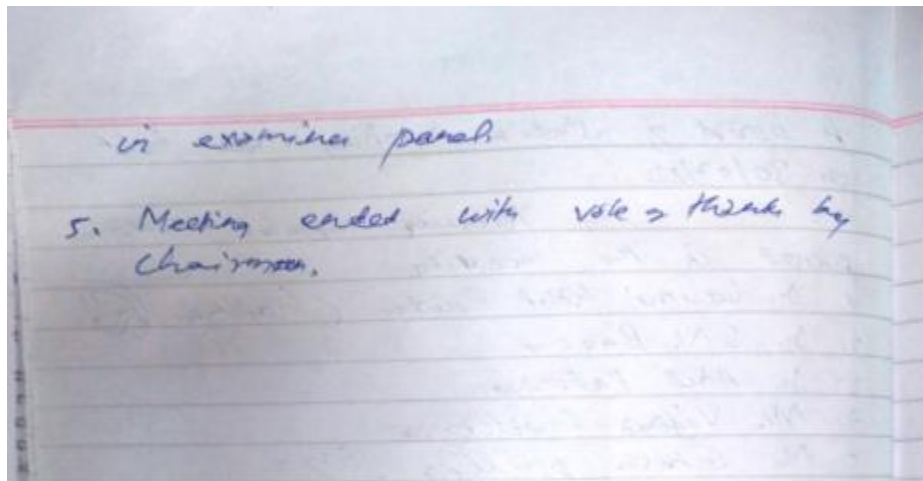 in examiner panel.
5. Meeting ended with vote of thanks by
Chairman.